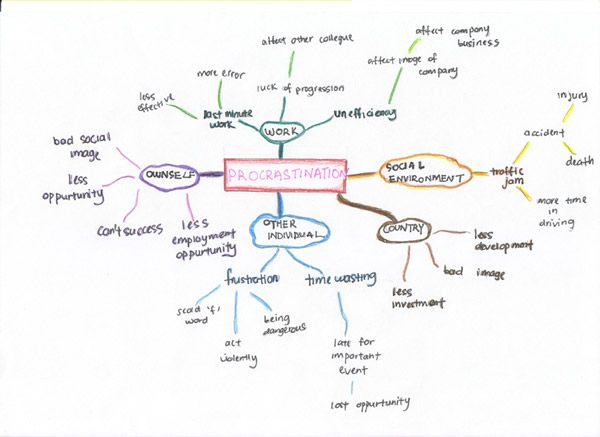 affect company
business
affect other colleque
affect image of
company
more error
luck of progression
less
effective
last minute
work
unefficiency
WORK
injury
accident
death
bad social
image
OWNSELF
less
oppurtunity
can't success
less
employment
oppurtunity
PROCRASTINATION
SOCIAL
ENVIRONMENT
traffic
jam
more time
in
driving
OTHER
INDIVIDUAL
COUNTRY
less
development
bad image
less
investment
frustration
time wasting
scold 'f'
word
act
violently
being
dangerous
late for
important
event
lost oppurtunity